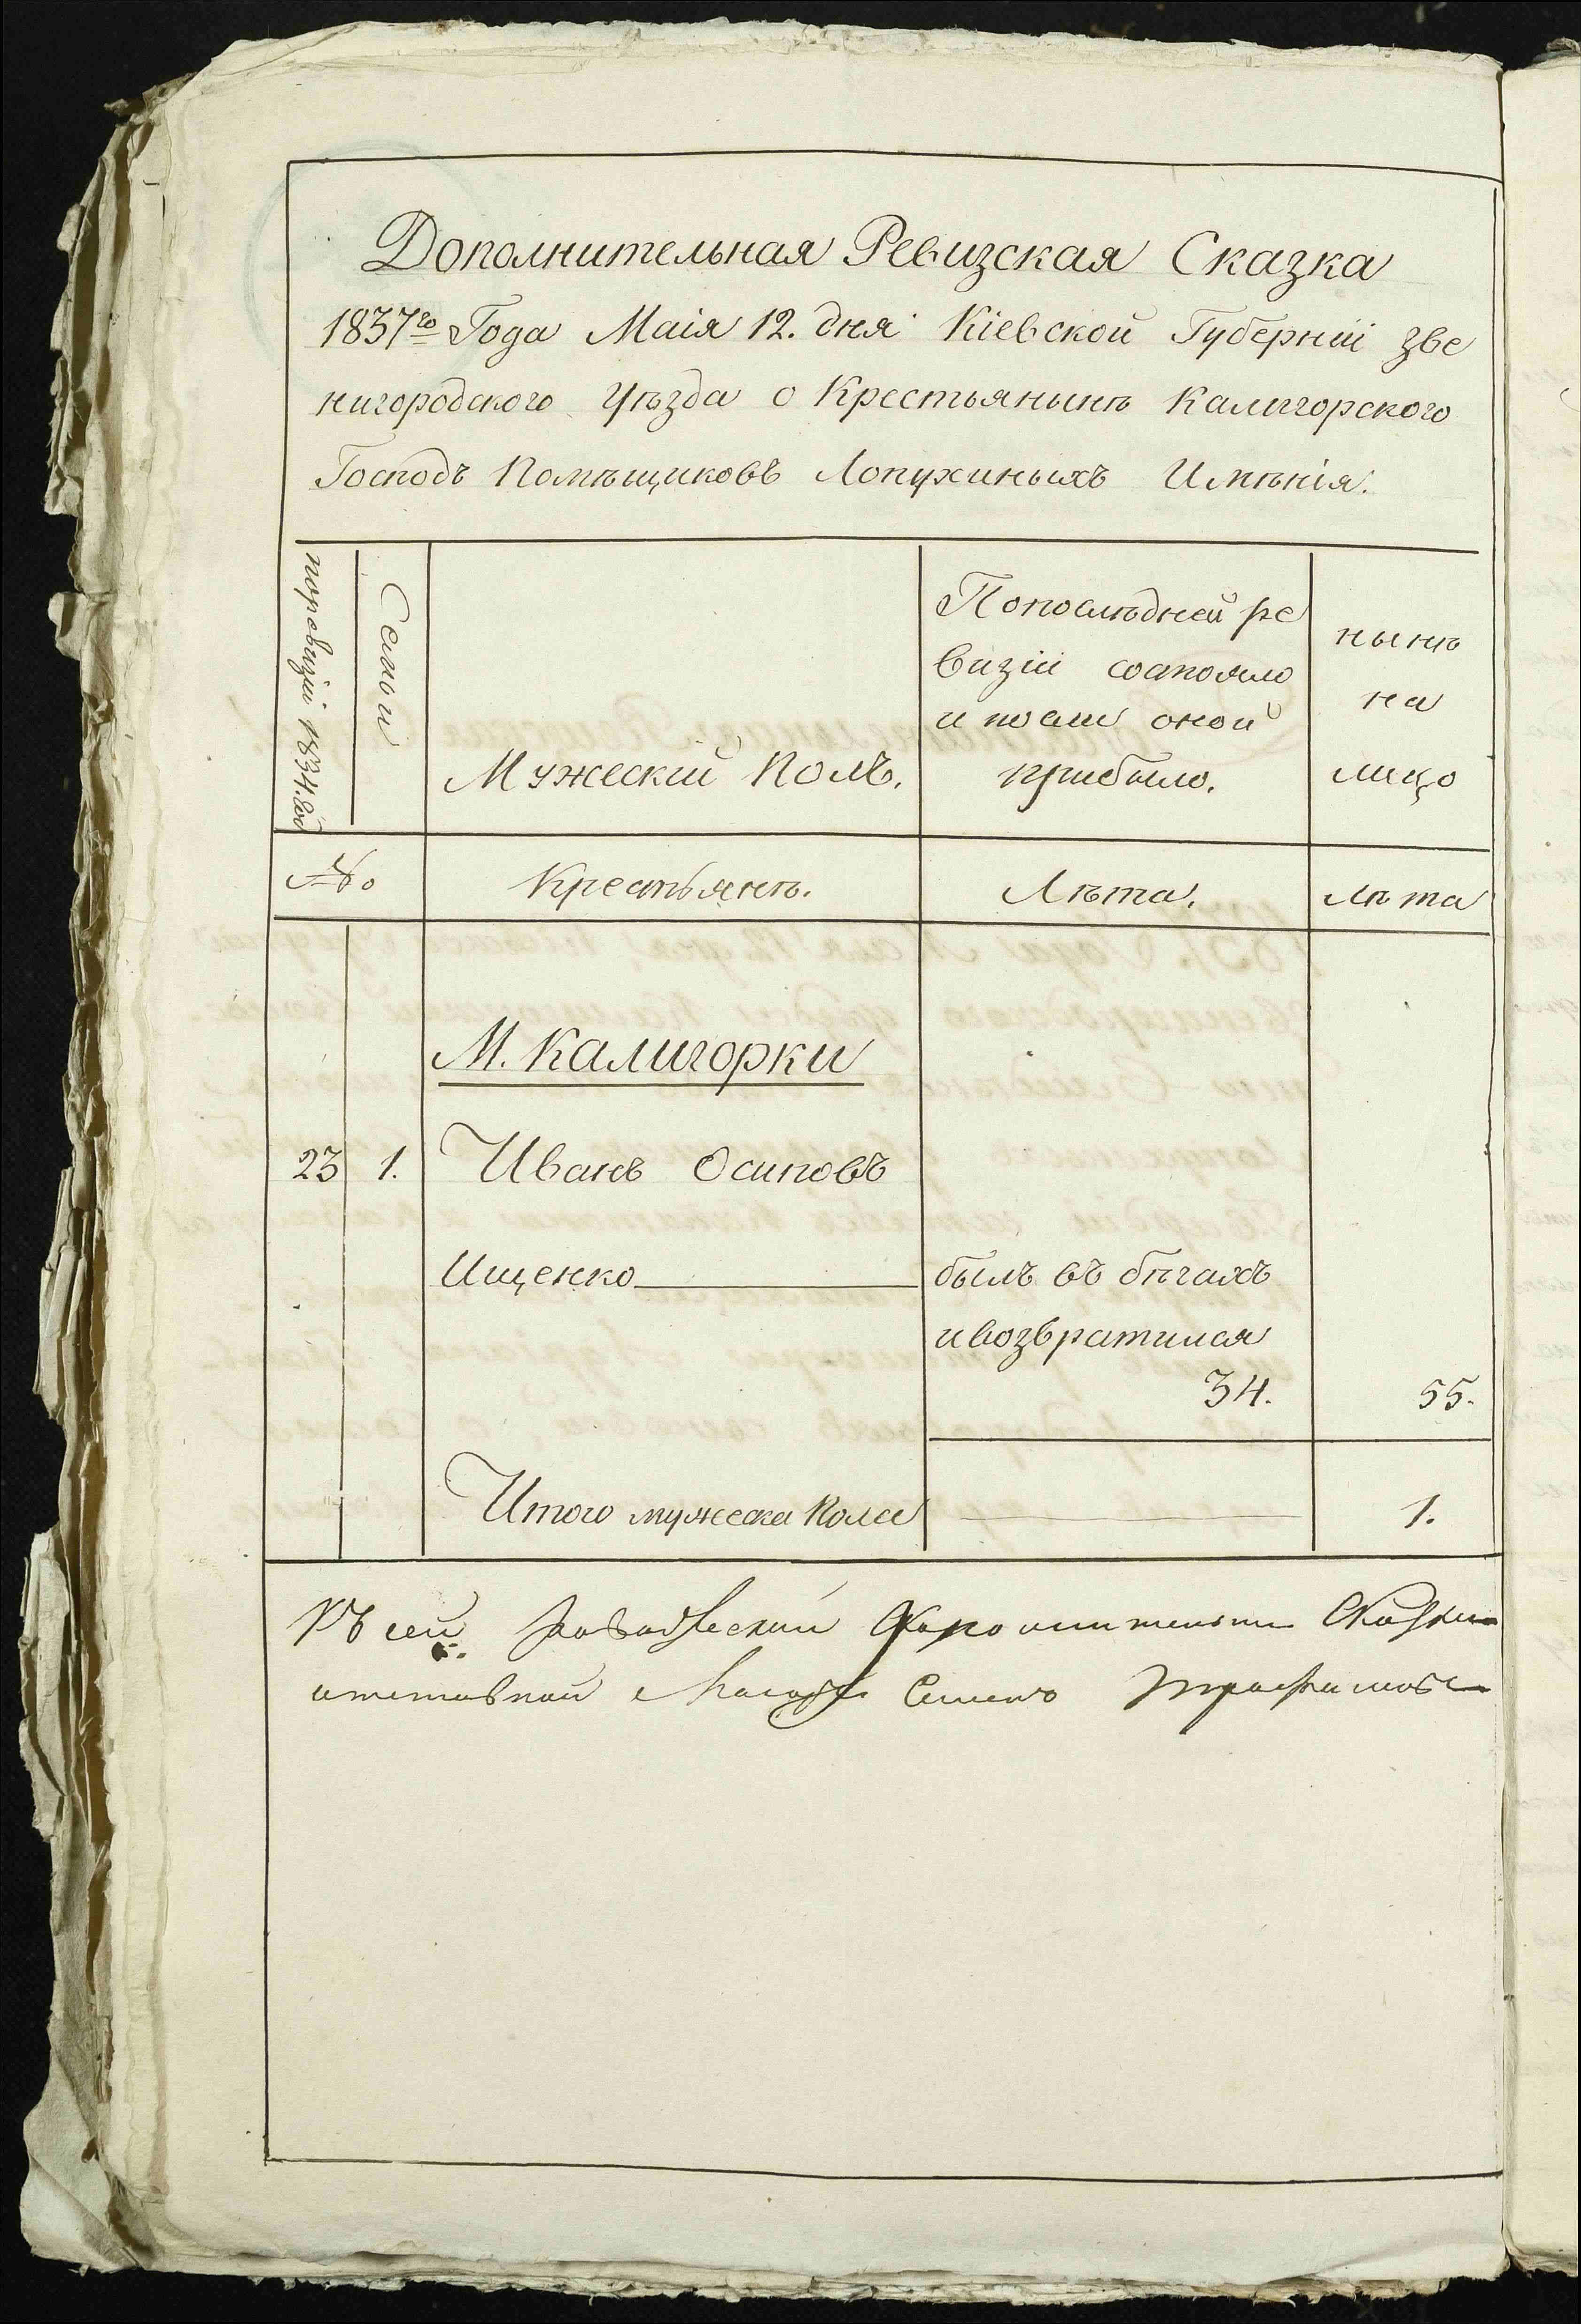 Дополнительная Ревизская Сказка
1837го Года Маія 12. дня Кіевской Губерніи зве
нигородского уѣзда о Крестьянынѣ Калигорского
Господъ Помѣщиковъ Лопухиныхъ Имѣнія.
поревизіи 1834. год
Семьи
Мужескій Полъ.
Попослѣдней ре
визіи состояло
и посли оной
прибыло.
нынѣ
на
лицо
№
Крестьянѣ.
Лѣта.
Лѣта
М. Калигорки
23 1. Иванъ Осиповъ
Ищенко былъ въ бѣгахъ
ивозвратился
34. 55.
Итого мужеска Пола 1.
Къ сей
Семенъ